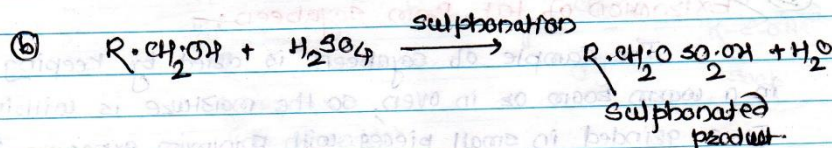 (b) R·CH₂·OH + H₂SO₄ —sulphonation→ R·CH₂·O SO₂·OH + H₂O
Sulphonated
product.